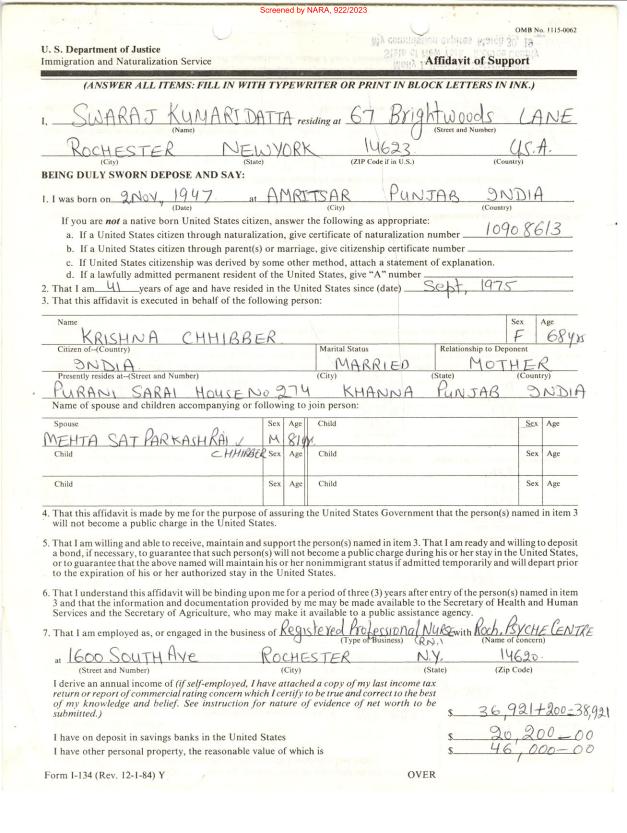 Screened by NARA, 922/2023
OMB No. 1115-0062
U. S. Department of Justice
Immigration and Naturalization Service
Affidavit of Support
(ANSWER ALL ITEMS: FILL IN WITH TYPEWRITER OR PRINT IN BLOCK LETTERS IN INK.)
I, SWARAJ KUMARI DATTA residing at 67 Brightwoods LANE
(Name) (Street and Number)
ROCHESTER NEWYORK 14623 U.S.A.
(City) (State) (ZIP Code if in U.S.) (Country)
BEING DULY SWORN DEPOSE AND SAY:
1. I was born on 2NOV, 1947 at AMRITSAR PUNJAB INDIA
(Date) (City) (Country)
If you are not a native born United States citizen, answer the following as appropriate:
a. If a United States citizen through naturalization, give certificate of naturalization number 10908613
b. If a United States citizen through parent(s) or marriage, give citizenship certificate number
c. If United States citizenship was derived by some other method, attach a statement of explanation.
d. If a lawfully admitted permanent resident of the United States, give "A" number
2. That I am 41 years of age and have resided in the United States since (date) Sept, 1975
3. That this affidavit is executed in behalf of the following person:
Name Sex Age
KRISHNA CHHIBBER F 68yrs
Citizen of--(Country) Marital Status Relationship to Deponent
INDIA MARRIED MOTHER
Presently resides at--(Street and Number) (City) (State) (Country)
PURANI SARAI HOUSE No 274 KHANNA PUNJAB INDIA
Name of spouse and children accompanying or following to join person:
Spouse Sex Age Child Sex Age
MEHTA SAT PARKASH RAI M 81yr
Child CHHIBBER Sex Age Child Sex Age
Child Sex Age Child Sex Age
4. That this affidavit is made by me for the purpose of assuring the United States Government that the person(s) named in item 3
will not become a public charge in the United States.
5. That I am willing and able to receive, maintain and support the person(s) named in item 3. That I am ready and willing to deposit
a bond, if necessary, to guarantee that such person(s) will not become a public charge during his or her stay in the United States,
or to guarantee that the above named will maintain his or her nonimmigrant status if admitted temporarily and will depart prior
to the expiration of his or her authorized stay in the United States.
6. That I understand this affidavit will be binding upon me for a period of three (3) years after entry of the person(s) named in item
3 and that the information and documentation provided by me may be made available to the Secretary of Health and Human
Services and the Secretary of Agriculture, who may make it available to a public assistance agency.
7. That I am employed as, or engaged in the business of Registered Professional NURSE with Roch. PSYCHE CENTRE
(Type of Business) (RN.) (Name of concern)
at 1600 SOUTH AVE ROCHESTER N.Y. 14620.
(Street and Number) (City) (State) (Zip Code)
I derive an annual income of (if self-employed, I have attached a copy of my last income tax
return or report of commercial rating concern which I certify to be true and correct to the best
of my knowledge and belief. See instruction for nature of evidence of net worth to be
submitted.) $ 36,921+200=38,921
I have on deposit in savings banks in the United States $ 20,200-00
I have other personal property, the reasonable value of which is $ 46,000-00
Form I-134 (Rev. 12-1-84) Y OVER